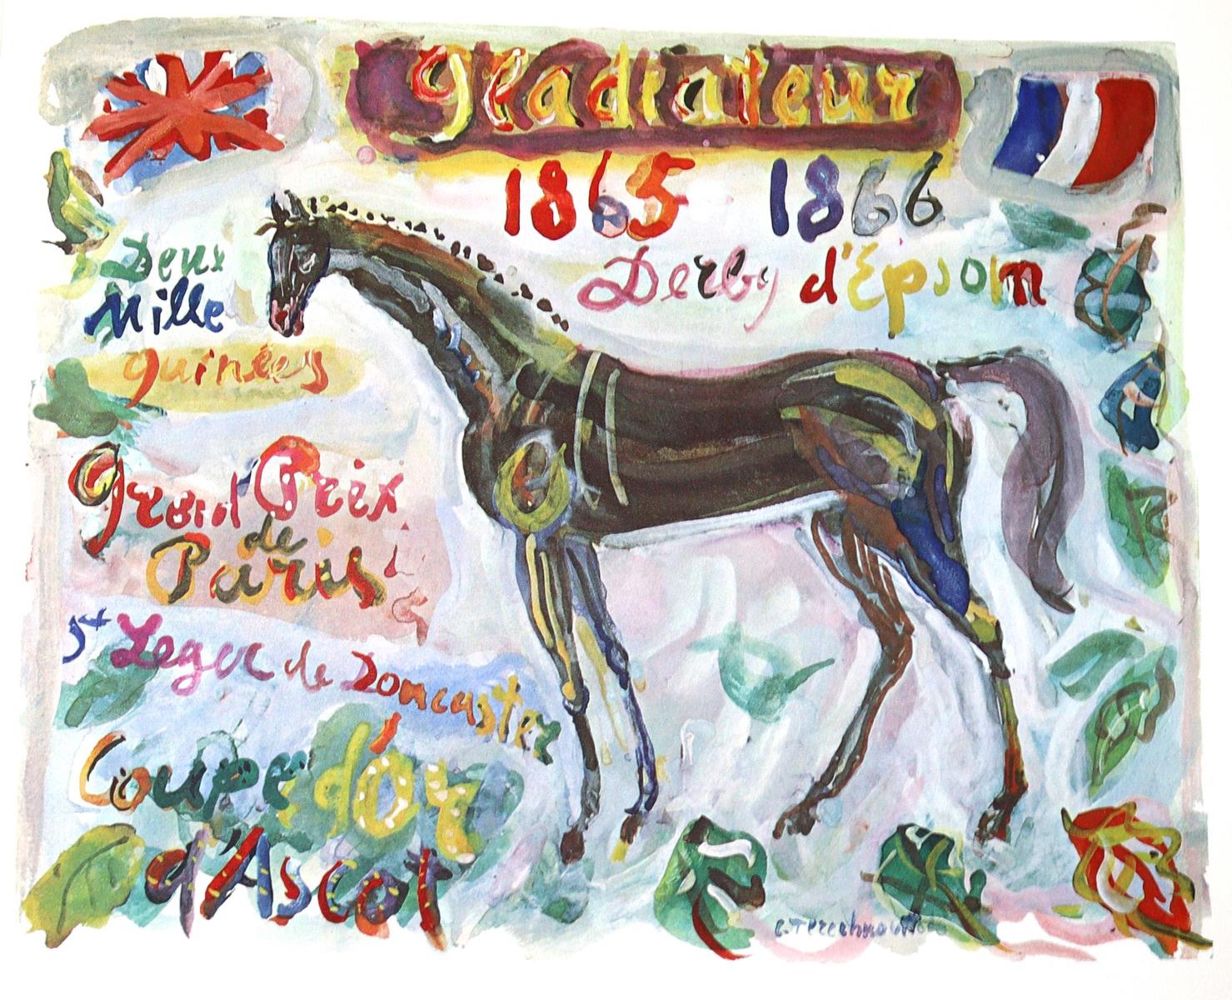 gladiateur
1865 1866
Derby d'Epsom
Deux
Mille
guinées
Grand Prix
de
Paris
St Leger de Doncaster
Coupe d'Or
d'Ascot
C. Terechkovitch